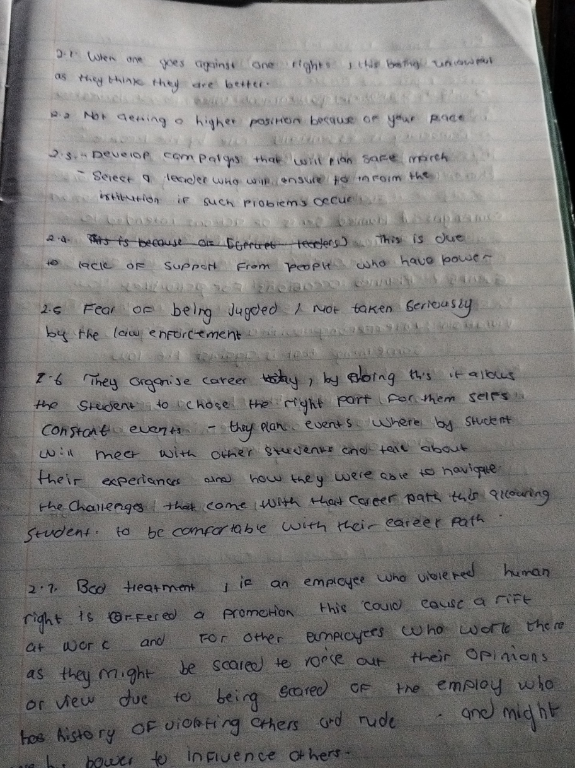 2.1 When one goes against one rights, this being
as they think they are better.
2.2 Not getting a higher position because of your
2.3. - Develop campaigs that will plan safe march
- Select a leader who will ensure to inform the
istitution if such problems occur
2.4. This is because of (corrupt leaders) This is due
to lack of support from people who have power
2.5 Fear of being Jugded / Not taken seriously
by the law enforcement.
2.6 They organise career today, by doing this it allows
the student to chose the right part for them selfs
constant events - they plan events where by student
will meet with other students and talk about
their experiances and how they were able to navigae
the challenges that come with that career path this allowing
student. to be comfortable with their career path.
2.7. Bad treatment, if an employee who violered human
right is offered a promotion this could cause a rift
at work and for other employees who work there
as they might be scared to raise out their opinions
or view due to being scared of the employ who
has history of violating others and rude. and might
power to influence others.